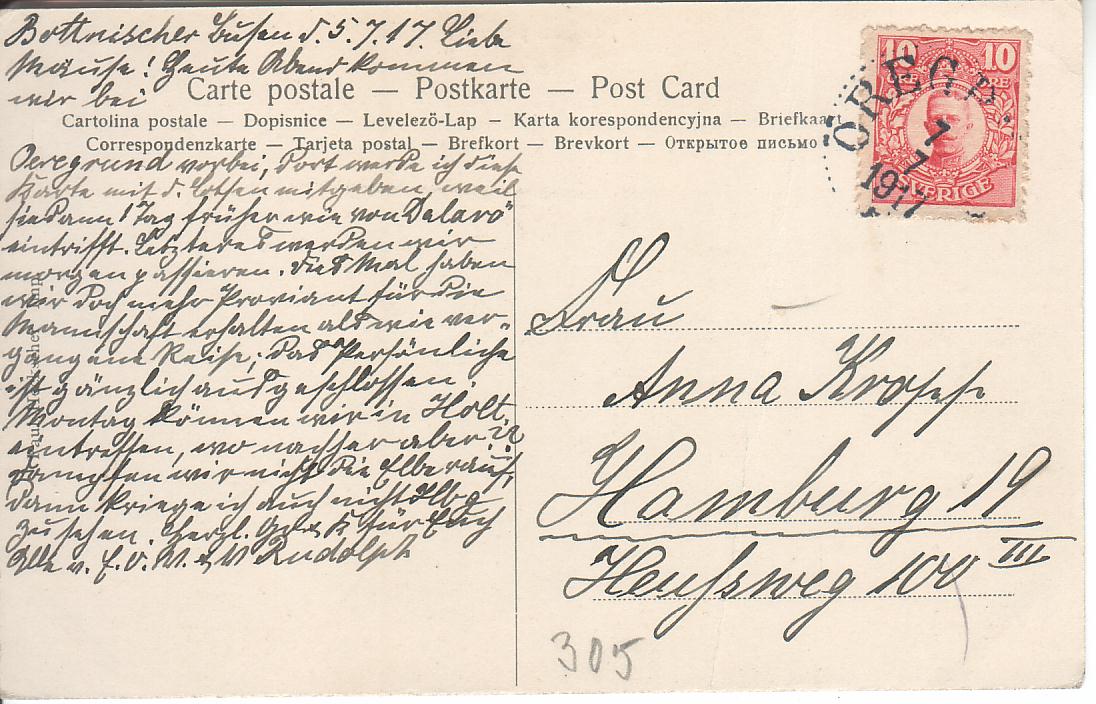 Bottnischer Busen d. 5.7.17. Liebe
Mäuse! Heute Abend kommen
wir bei
Carte postale — Postkarte — Post Card
Cartolina postale — Dopisnice — Levelező-Lap — Karta korespondencyjna — Briefkaart
Correspondenzkarte — Tarjeta postal — Brefkort — Brevkort — Открытое письмо
Oeregrund vorbei, dort werde ich diese
Karte mit d. Lotsen mitgeben, weil
sie dann 1 Tag früher wie von Dalarö
eintrifft. Letzteres werden wir
morgen passieren. Dies Mal haben
wir doch mehr Proviant für die
Mannschaft erhalten als wie ver-
gangene Reise; das Persönliche
ist gänzlich ausgeschlossen.
Montag können wir in Holt.
eintreffen, wo nachher aber??
dampfen wir nicht die Elbe rauf,
dann kriege ich auch nicht
zu sehen. Herzl. & K für Euch
Alle v. E. O. V. & V Rudolph
10 10
ÖRE ÖRE
SVERIGE
ÖREGR
7
7
1917
Frau
Anna Kropp
Hamburg 19
Heußweg 100 III
305